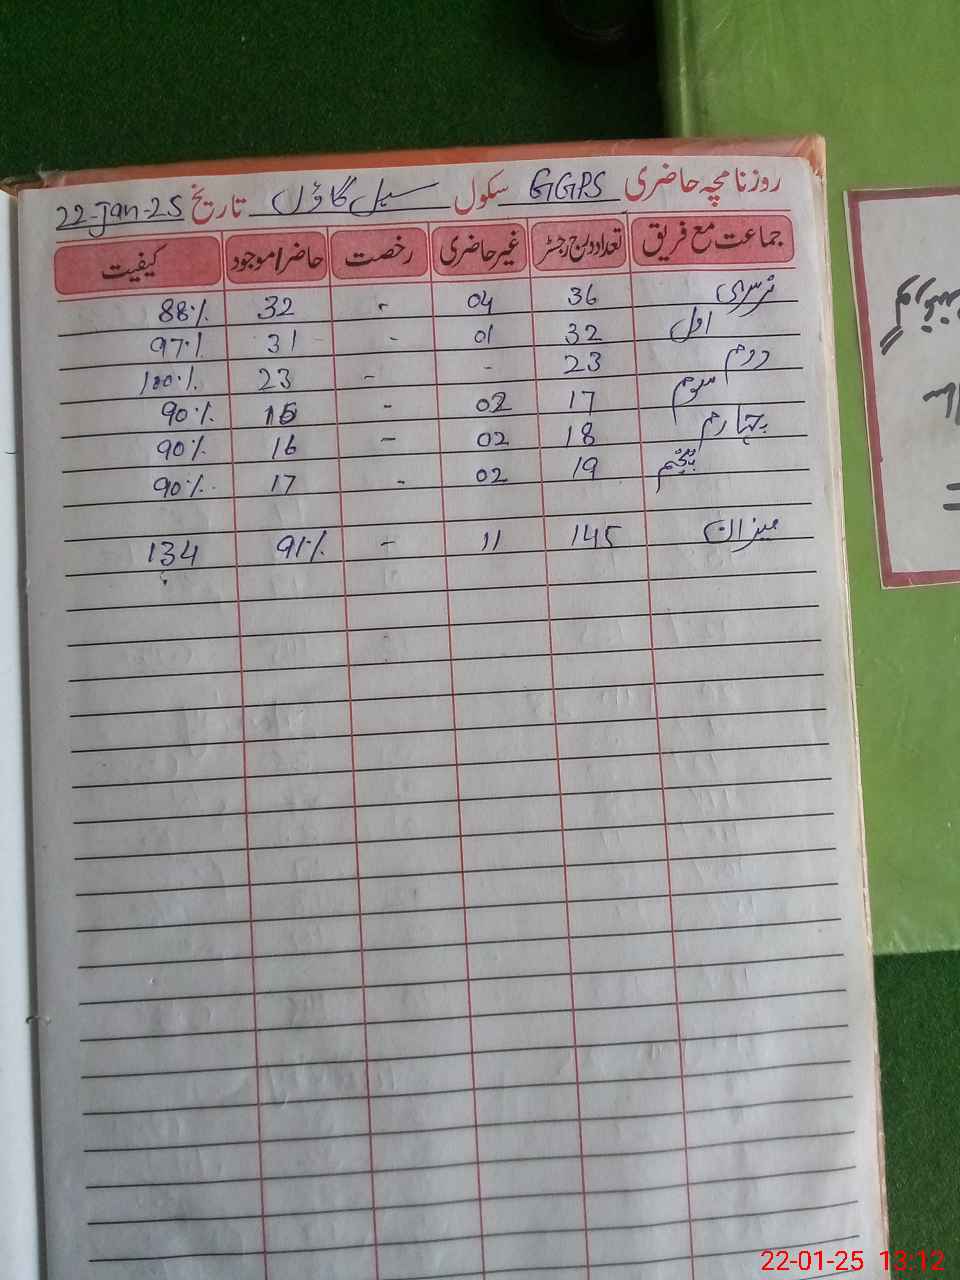 روزنامچہ حاضری GGPS سکول سیل گاؤں تاریخ 22-Jan-25
جماعت مع فریق تعداد درج رجسٹر غیر حاضری رخصت حاضر/موجود کیفیت
نرسری 36 04 - 32 88%
اول 32 01 - 31 97%
دوم 23 - - 23 100%
سوم 17 02 - 15 90%
چہارم 18 02 - 16 90%
پنجم 19 02 - 17 90%
میزان 145 11 - 91% 134
22-01-25 13:12